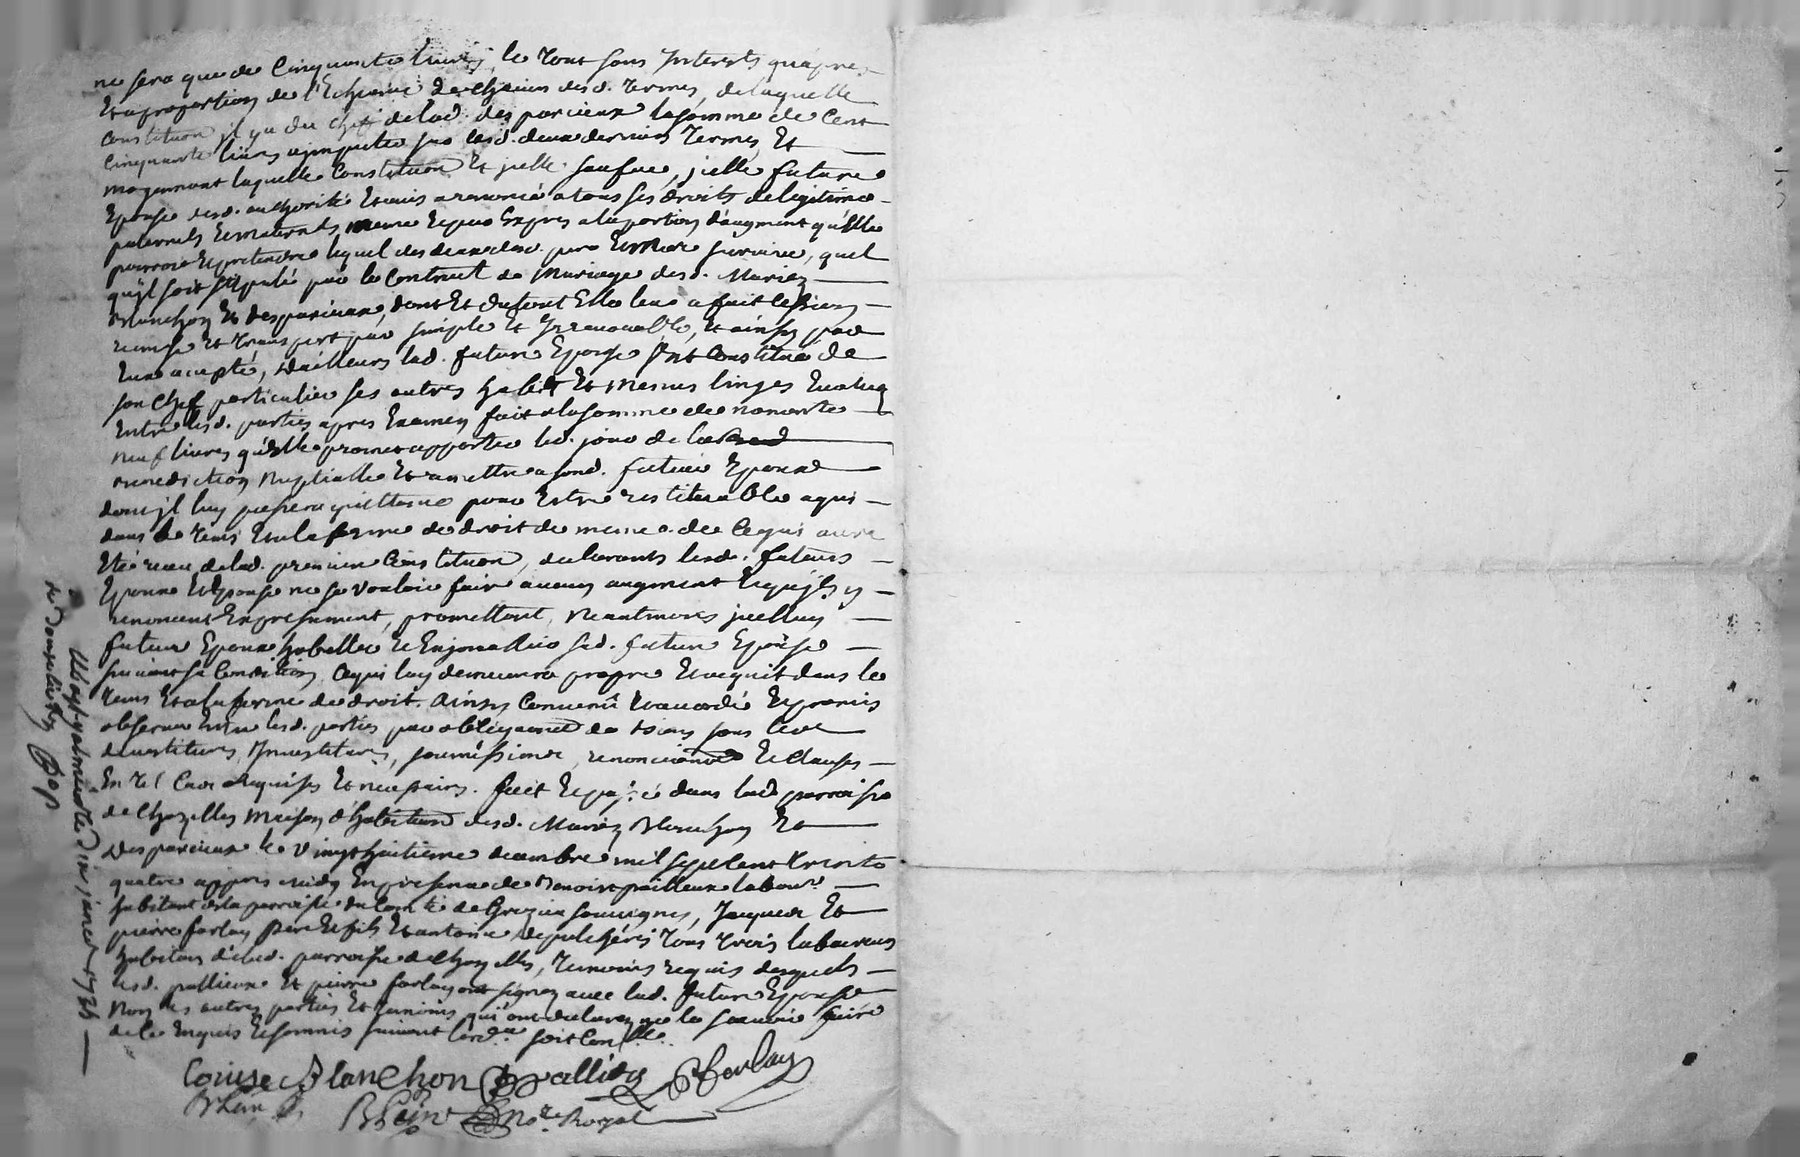 ne sera que de Cinquante livres, le tout sans Interests qu'apres
Et a proportion de l'Echeance de Chacun desd. termes, de laquelle
Constitution il y a du Chef de lad. des parieux la somme de Cent
Cinquante livres a imputer sur lesd. deux derniers termes, Et
moyennant laquelle Constitution Et jcelle saufue, jcelle future
Epouse desd. authorité Et avis a renoncé a tous ses droits de legitime
paternels Et maternels meme Et par Expres a la portion d'augment qu'Elle
pourroit Et pretendre lequel des deux desd. pere Et mere survive, quel
qu'jl soit stipulé par le Contract de Mariage desd. Mariez
Blanchon Et des parieux, dont Et du tout Elle leur a fait Cession
remise et transport pur simple et Irrevocable, Et ainsy par
Eux accepté, d'ailleurs lad. future Epouse s'est Constitué de
son Chef particulier ses autres habits Et menus linges Evalués
Entre lesd. parties apres Examen fait a la somme de nonante
neuf livres qu'Elle promet apporter led. jour de la
benediction Nuptialle Et remettre a sond. futur Epoux
dont jl luy passera quittance pour Estre restituable a qui
dans le tems Et en la forme de droit de meme que de Ce qui aura
Eté receu de lad. premiere Constitution, declarants lesd. futurs
Epoux Et Epouse ne se vouloir faire aucun augment Et qu'jls y
renoncent Expressement, promettant, Neantmoins jcelluy
futur Epoux habiller Et Enjoualler sad. future Epouse
suivant sa Condition, Ce qui luy demeurera propre Et acquit dans le
tems Et a la forme de droit. Ainsy Convenu Et accordé Et promis
observer Entre lesd. parties par obligations de biens sous Cleve
devestitures, Investitures, soumissions, renonciations Et Clauses
En tel Cas Requises Et necessaires. fait Et passé dans lad. parroisse
de Chazelles Maison d'habitation desd. Mariez Blanchon Et
Des parieux le vingt huitieme decembre mil sept Cent trente
quatre appres midy En presence de Benoist pailleux labour.
habitant de la parroisse du Comté de Grezieu Souvignes, Jacques Et
pierre farlay pere Et fils Et antoine depulcheris tous trois laboureurs
habitans d'Elad. parroisse de Chazelles, Temoins requis desquels
lesd. pallieux Et pierre farlay ont signez avec lad. future Epouse
Non les autres parties Et temoins qui ont declarez ne le scavoir faire
de Ce Enquis Et sommés suivant l'ord. soit Con.lle.
Louise Blanchon Pallieu P farlay
Blein Blein No.re Royal
de Donzelisthon
Et le dix janvier 1735